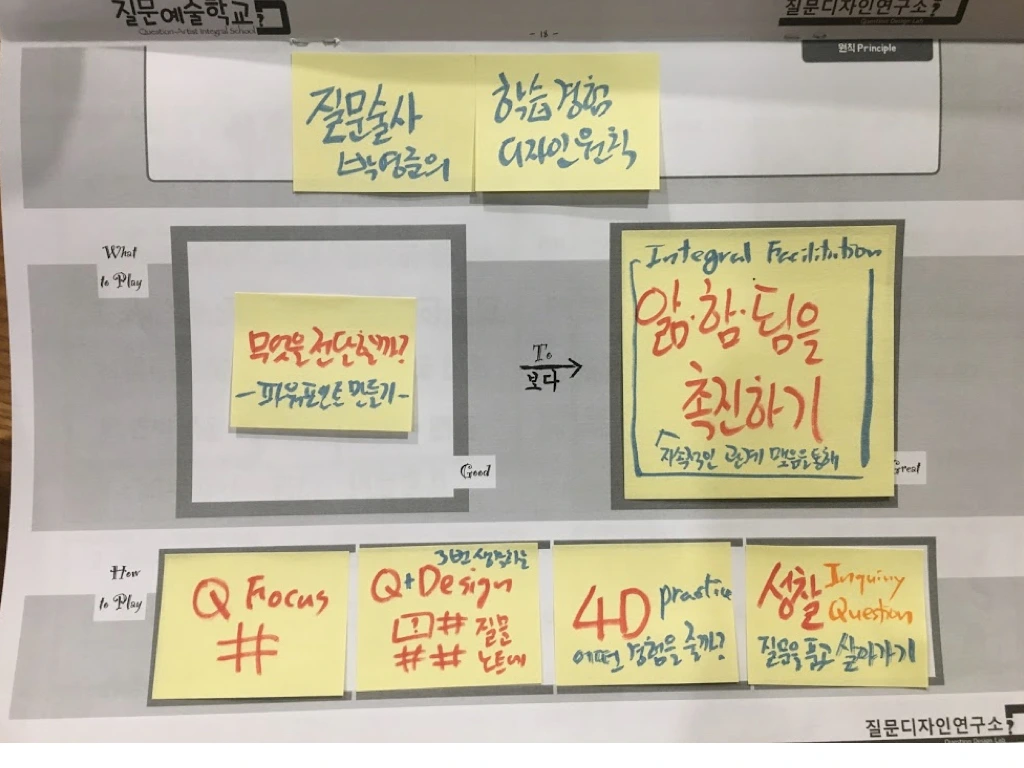 질문예술학교?
Question-Artist Integral School
질문디자인연구소?
Question Design Lab
- 18 -
원칙 Principle
질문술사
박영준의
학습경험
디자인원칙
What
to Play
무엇을 전달할까?
-파워포인트 만들기-
Good
To
보다
Integral Facilitution
앎·함·됨을
촉진하기
지속적인 관계 맺음을통해
Great
How
to Play
Q Focus
#
3번 생각하는
Q+Design
? # 질문
# # 노트에
4D practice
어떤 경험을 줄까?
성찰 Inquiry
Question
질문을 품고 살아가기
질문디자인연구소?
Question Design Lab